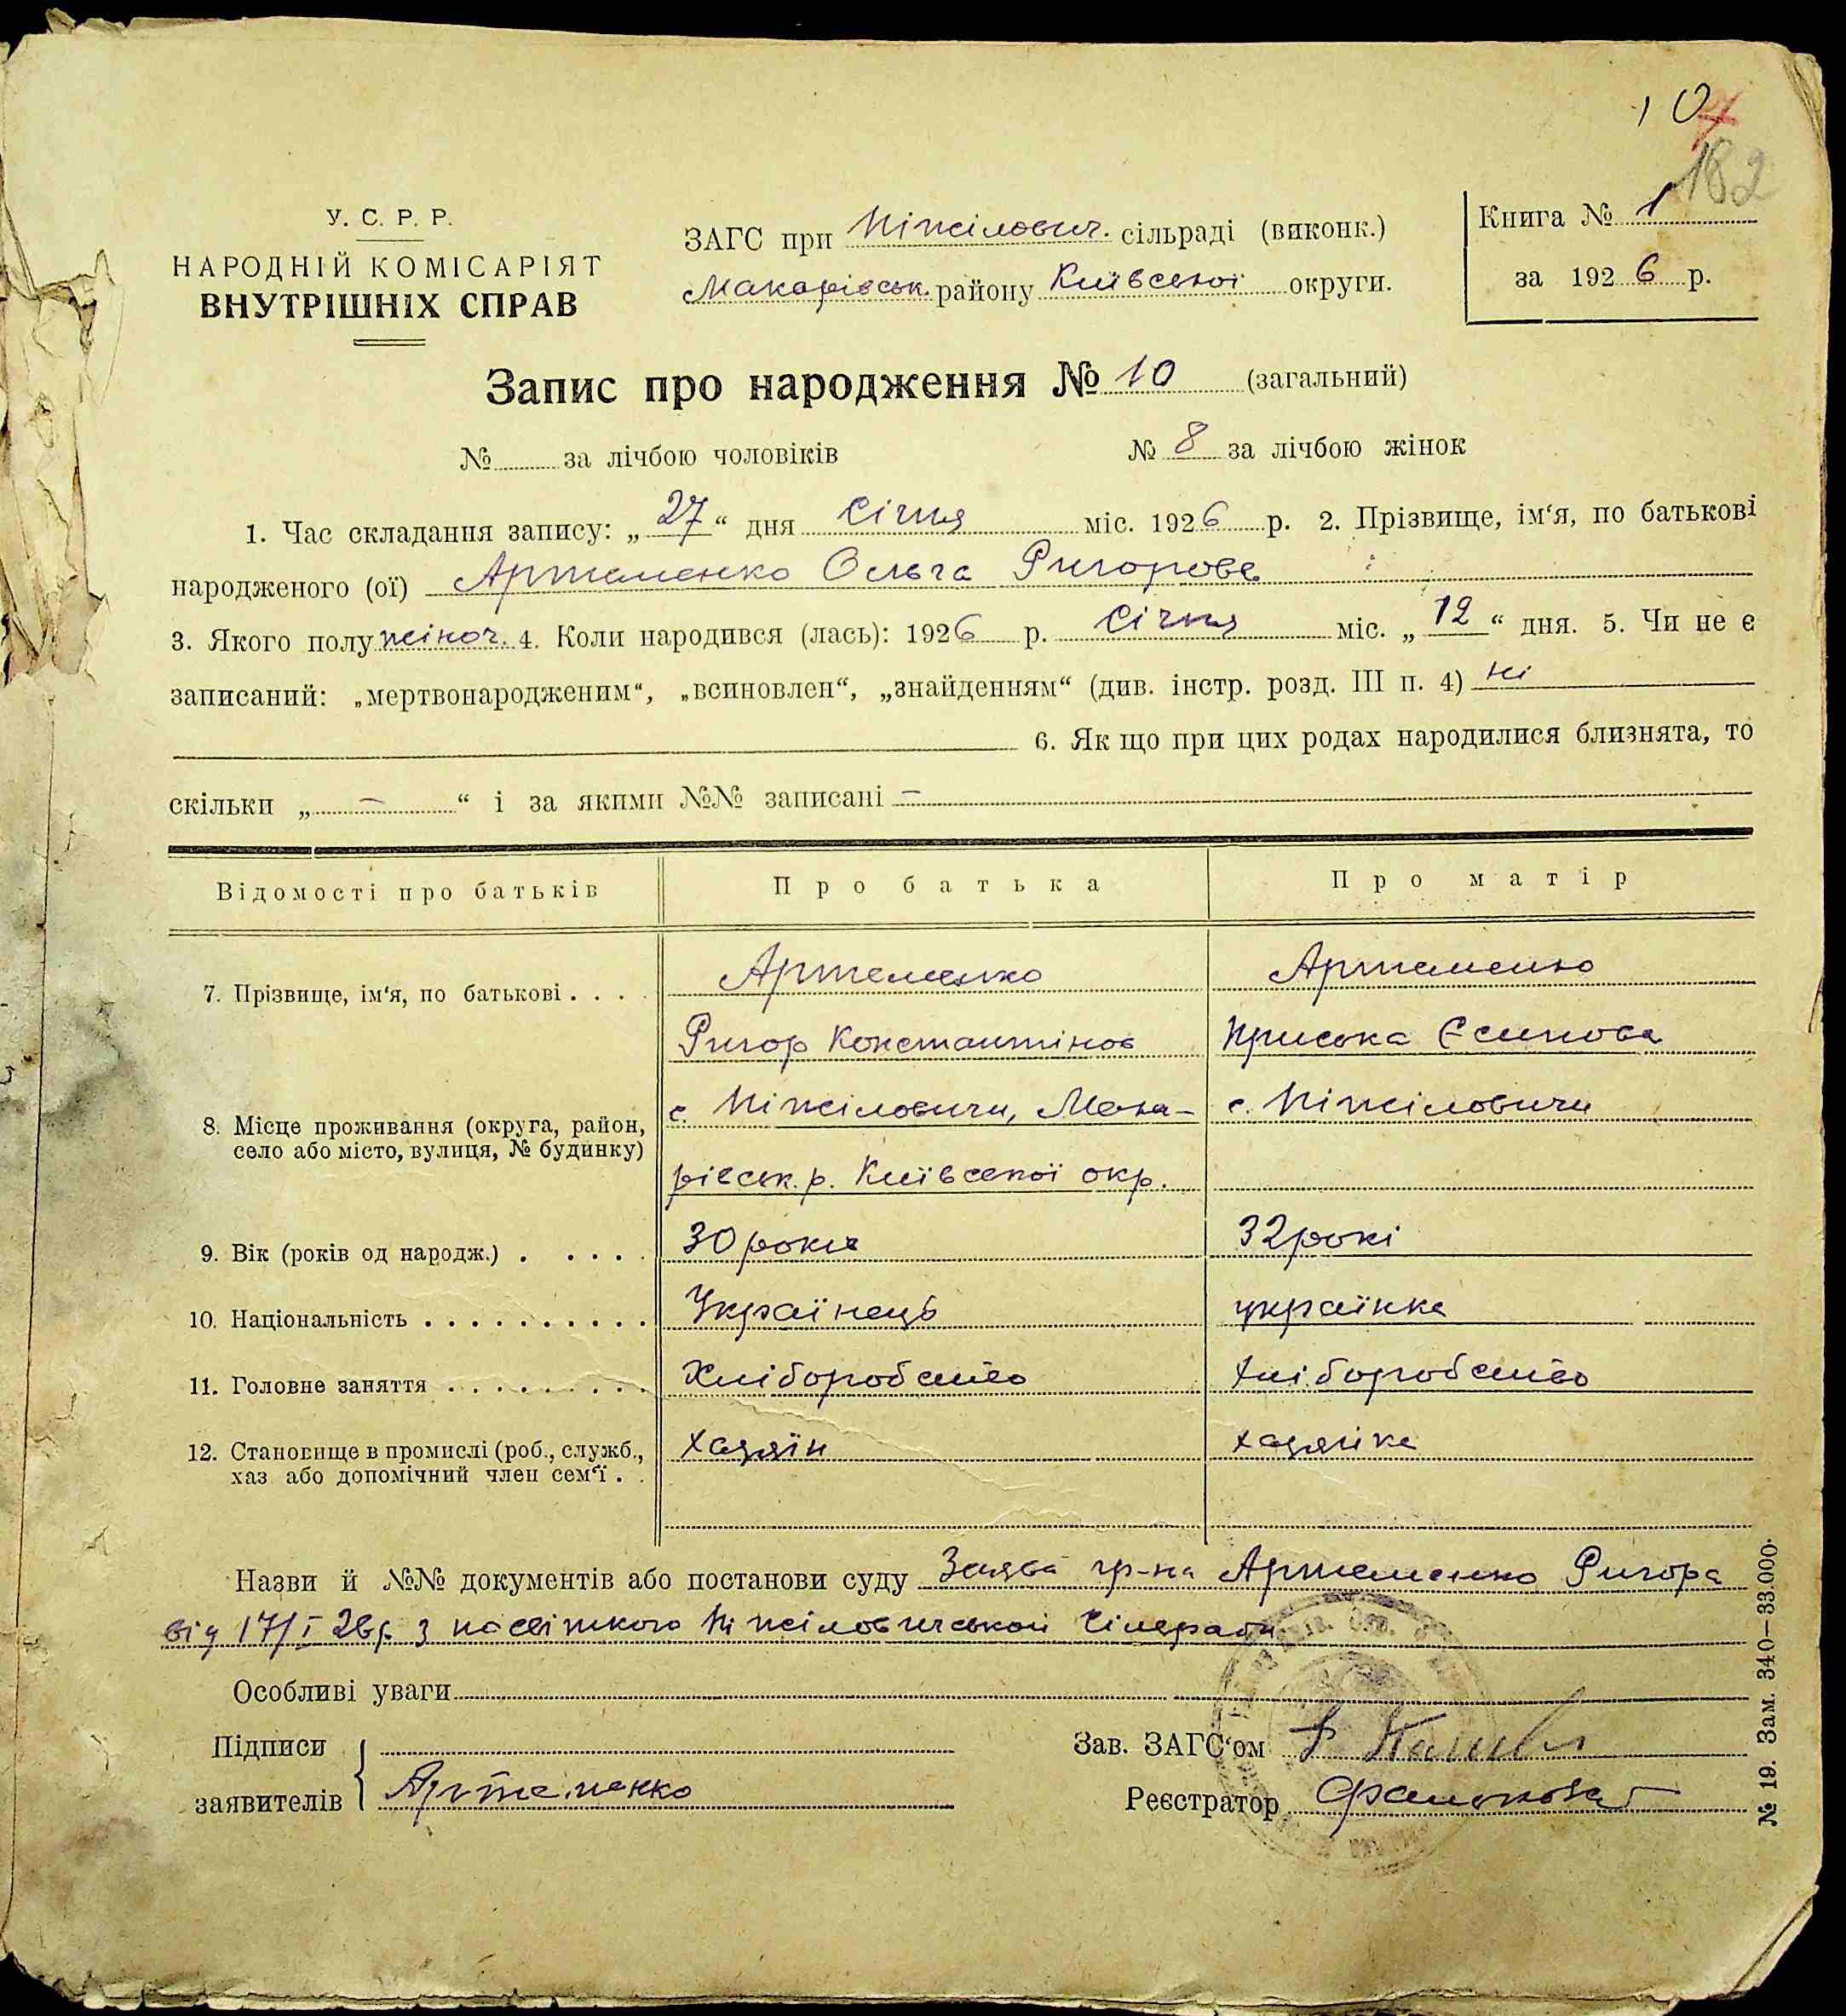 107
182
У. С. Р. Р.
НАРОДНІЙ КОМІСАРІЯТ
ВНУТРІШНІХ СПРАВ
ЗАГС при Ніжілович. сільраді (виконк.)
Макарівськ. району Київської округи.
Книга № 1
за 1926 р.
Запис про народження № 10 (загальний)
№ за лічбою чоловіків № 8 за лічбою жінок
1. Час складання запису: „27“ дня Січня міс. 1926 р. 2. Прізвище, ім‘я, по батькові
народженого (ої) Артеменко Ольга Ригорова
3. Якого полу жіноч. 4. Коли народився (лась): 1926 р. Січня міс. „12“ дня. 5. Чи не є
записаний: „мертвонародженим“, „всиновлен“, „знайденням“ (див. інстр. розд. III п. 4) ні
6. Як що при цих родах народилися близнята, то
скільки „ — “ і за якими №№ записані —
Відомості про батьків Про батька Про матір
7. Прізвище, ім‘я, по батькові . . . . Артеменко Артеменко
Ригор Константінов Приська Єсипова
8. Місце проживання (округа, район, с. Ніжіловичи, Мака- с. Ніжіловичи
село або місто, вулиця, № будинку)
рівськ. р. Київської окр.
9. Вік (років од народж.) . . . . . 30 роки 32 рокі
10. Національність . . . . . . . . . . Українець українка
11. Головне заняття . . . . . . . . . Хліборобство хліборобство
12. Становище в промислі (роб., служб., хазяїн хазяйка
хаз або допомічний член сем‘ї . .
Назви й №№ документів або постанови суду Заява гр-на Артеменко Ригора
від 17/I 26р. з посвіткою Ніжіловичської Сільради
Особливі уваги
Підписи
заявителів Артеменко
Зав. ЗАГС‘ом
Реєстратор
№ 19. Зам. 340—33.000.